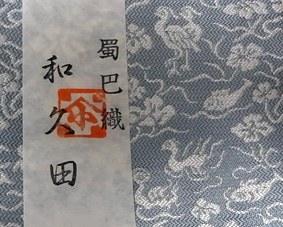 蜀巴織
和久田